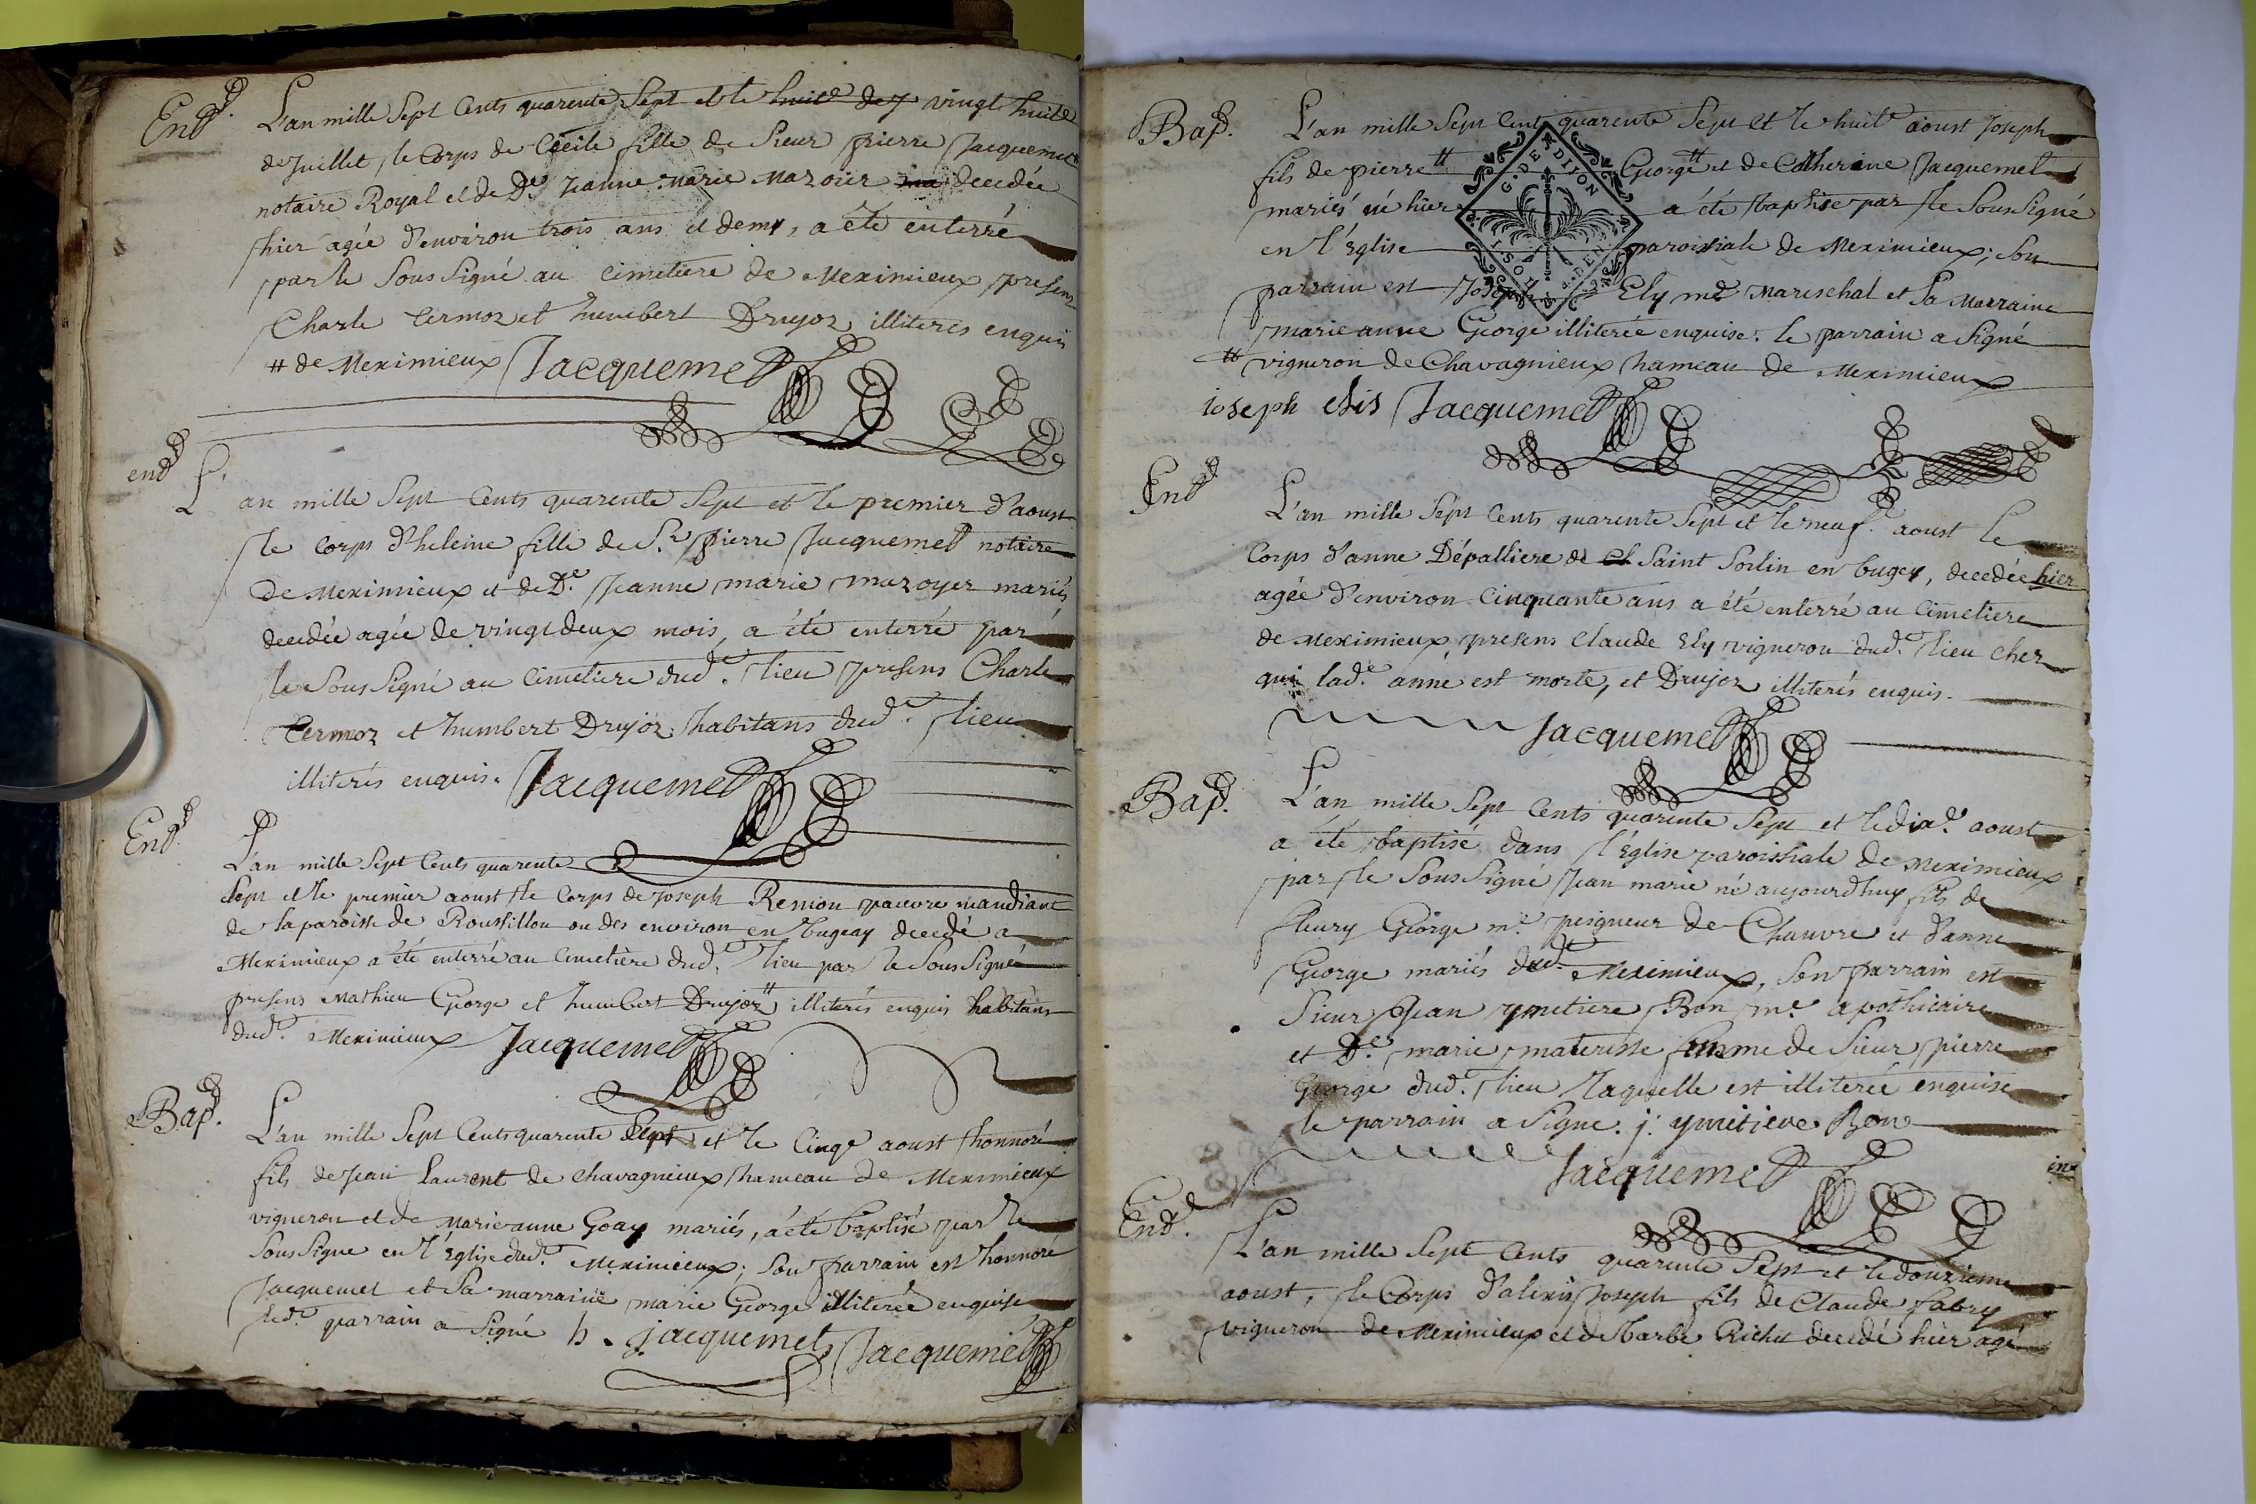 Entt. L'an mille Sept Cents quarente Sept et le huite de 7 vingt huite
de Juillet, le Corps de Cécile fille de Sieur pierre Jacquemet
notaire Royal et de De Jeanne Marie Mazoïer decedée
hier agée d'environ trois ans et demy, a été enterré
par le Sous Signé au Cimetiere de Meximieux, presens
Charle Cermoz et humbert Drujoz illiterés enquis
# de Meximieux Jacquemet
ent L'an mille Sept Cents quarente Sept et le premier d'aoust
le Corps d'heleine fille de Sr. pierre Jacquemet notaire
de Meximieux et de De. Jeanne marie mazoyer mariés,
decedée agée de vingt deux mois, a été enterré par
le Sous Signé au Cimetiere dud. lieu presens Charle
Cermoz et humbert Drujoz habitans dud. lieu
illiterés enquis. Jacquemet
Entt. L'an mille Sept Cents quarente
Sept et le premier aoust le Corps de Joseph Remon pauvre mandiant
de la paroisse de Roussillon ou des environ en Bugeay decedé a
Meximieux a été enterré au Cimetière dud. lieu par le Sous Signé
presens Mathieu George et humbert Drujoz # illiterés enquis habitans
dud. Meximieux Jacquemet
Bapt. L'an mille Sept Cents quarente Sept et le Cinqe aoust honnoré
fils de Jean Laurent de Chavagnieux hameau de Meximieux
vigneron et de Marie anne Goay mariés, a été baptisé par le
Sous Signe en l'Eglise dud. Meximieux; Son parrain est honnoré
Jacquemet et Sa marraine marie George illiterée enquise
led. parrain a Signé h. jacquemet Jacquemet
Bapt. L'an mille Sept Cents quarente Sept et le huite aoust Joseph
fils de pierre # George # et de Catherine Jacquemet
mariés né hier a été baptisé par le Sous Signé
en l'Eglise paroissiale de Meximieux; Son
parrain est Joseph Ely me Mareschal et Sa Marraine
marie anne George illiterée enquise. le parrain a Signé
# vigneron de Chavagnieux hameau de Meximieux
G. DE DIJON
ioseph elis Jacquemet
Entt L'an mille Sept Cents quarente Sept et le neufe. aoust le
Corps d'anne Dépalliere de Saint Sorlin en bugey, decedée hier
agée d'environ Cinquante ans a été enterré au Cimetiere
de Meximieux, presens Claude Ely vigneron dud. lieu cher
qui lad. anne est morte, et Drujoz illiterés enquis.
Jacquemet
Bapt. L'an mille Sept Cents quarente Sept et le dixe. aoust
a été baptisé dans l'Eglise paroissiale de Meximieux
par le Sous Signé Jean marie né aujourdhuy fils de
fleury George me. peigneur de Chanvre et d'anne
George mariés dud. Meximieux, Son parrain est
Sieur Jean ymetiere Bon me. apothicaire
et De. marie materisse femme de Sieur pierre
George dud. lieu laquelle est illiterée enquise
le parrain a Signe. j. ymetiere Bon
Jacquemet
Ent. L'an mille Sept Cents quarente Sept et le douzieme
aoust, le Corps d'alexis Joseph fils de Claude fabry
vigneron de Meximieux et de Barbe Richet decedé hier agé